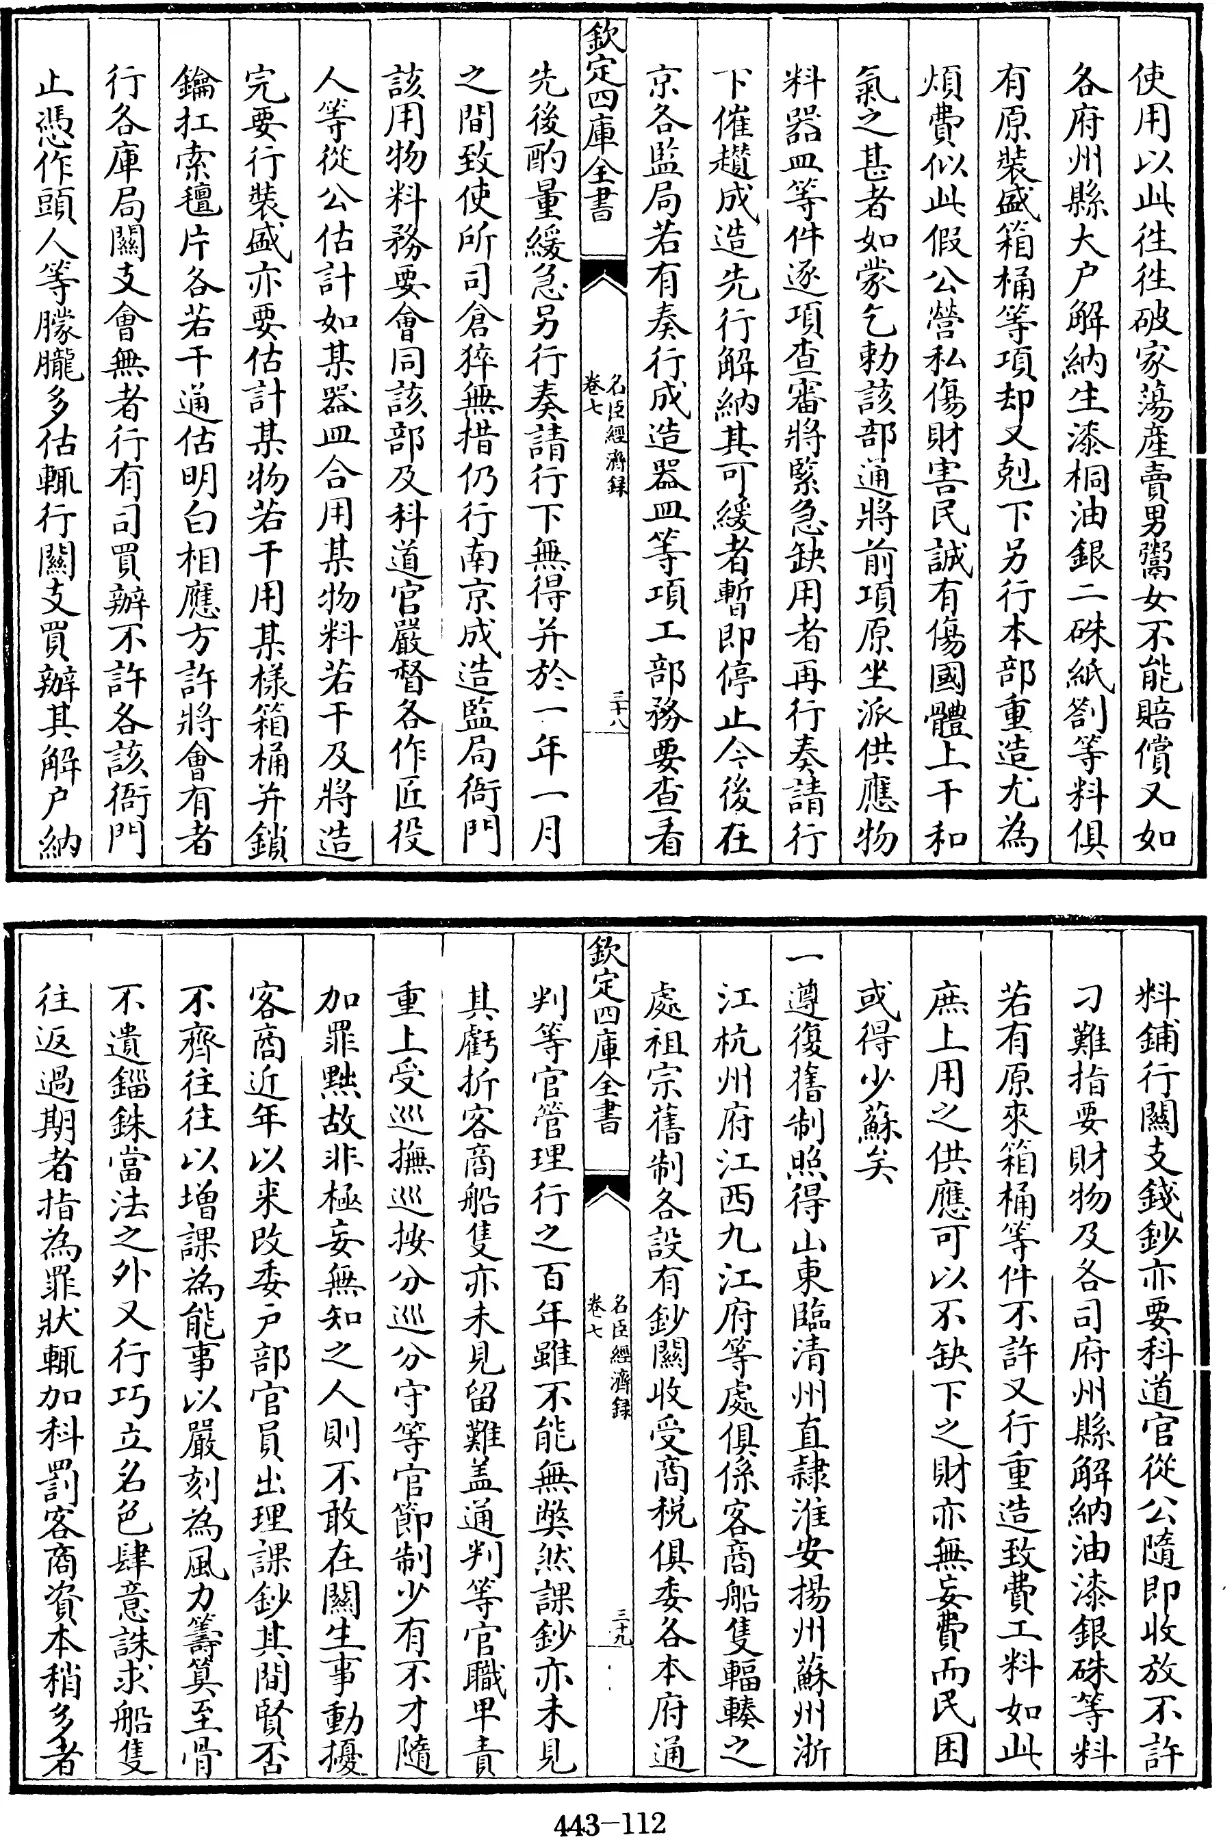 使用以此徃徃破家蕩産賣男鬻女不能賠償又如
各府州縣大户解納生漆桐油銀二硃紙劄等料俱
有原裝盛箱桶等項却又剋下另行本部重造尤為
煩費似此假公營私傷財害民誠有傷國體上干和
氣之甚者如蒙乞勅該部通將前項原坐派供應物
料器皿等件逐項查審將緊急缺用者再行奏請行
下催趲成造先行解納其可緩者暫即停止今後在
京各監局若有奏行成造器皿等項工部務要查看
欽定四庫全書
名臣經濟録
卷七
三十八
先後酌量緩急另行奏請行下無得并於一年一月
之間致使所司倉猝無措仍行南京成造監局衙門
該用物料務要會同該部及科道官嚴督各作匠役
人等從公估計如某器皿合用某物料若干及將造
完要行裝盛亦要估計某物若干用某樣箱桶并鎖
鑰扛索氊片各若干通估明白相應方許將會有者
行各庫局關支會無者行有司買辦不許各該衙門
止憑作頭人等朦朧多估輒行關支買辦其解户納
料鋪行關支錢鈔亦要科道官從公隨即收放不許
刁難指要財物及各司府州縣解納油漆銀硃等料
若有原來箱桶等件不許又行重造致費工料如此
庶上用之供應可以不缺下之財亦無妄費而民困
或得少蘇矣
一遵復舊制照得山東臨清州直隸淮安揚州蘇州浙
江杭州府江西九江府等處俱係客商船隻輻輳之
處祖宗舊制各設有鈔關收受商税俱委各本府通
欽定四庫全書
名臣經濟録
卷七
三十九
判等官管理行之百年雖不能無獘然課鈔亦未見
其虧折客商船隻亦未見留難盖通判等官職卑責
重上受巡撫巡按分巡分守等官節制少有不才隨
加罪黜故非極妄無知之人則不敢在關生事動擾
客商近年以来改委户部官員出理課鈔其間賢否
不齊往往以增課為能事以嚴刻為風力籌算至骨
不遺錙銖當法之外又行巧立名色肆意誅求船隻
往返過期者指為罪狀輒加科罰客商資本稍多者
443-112